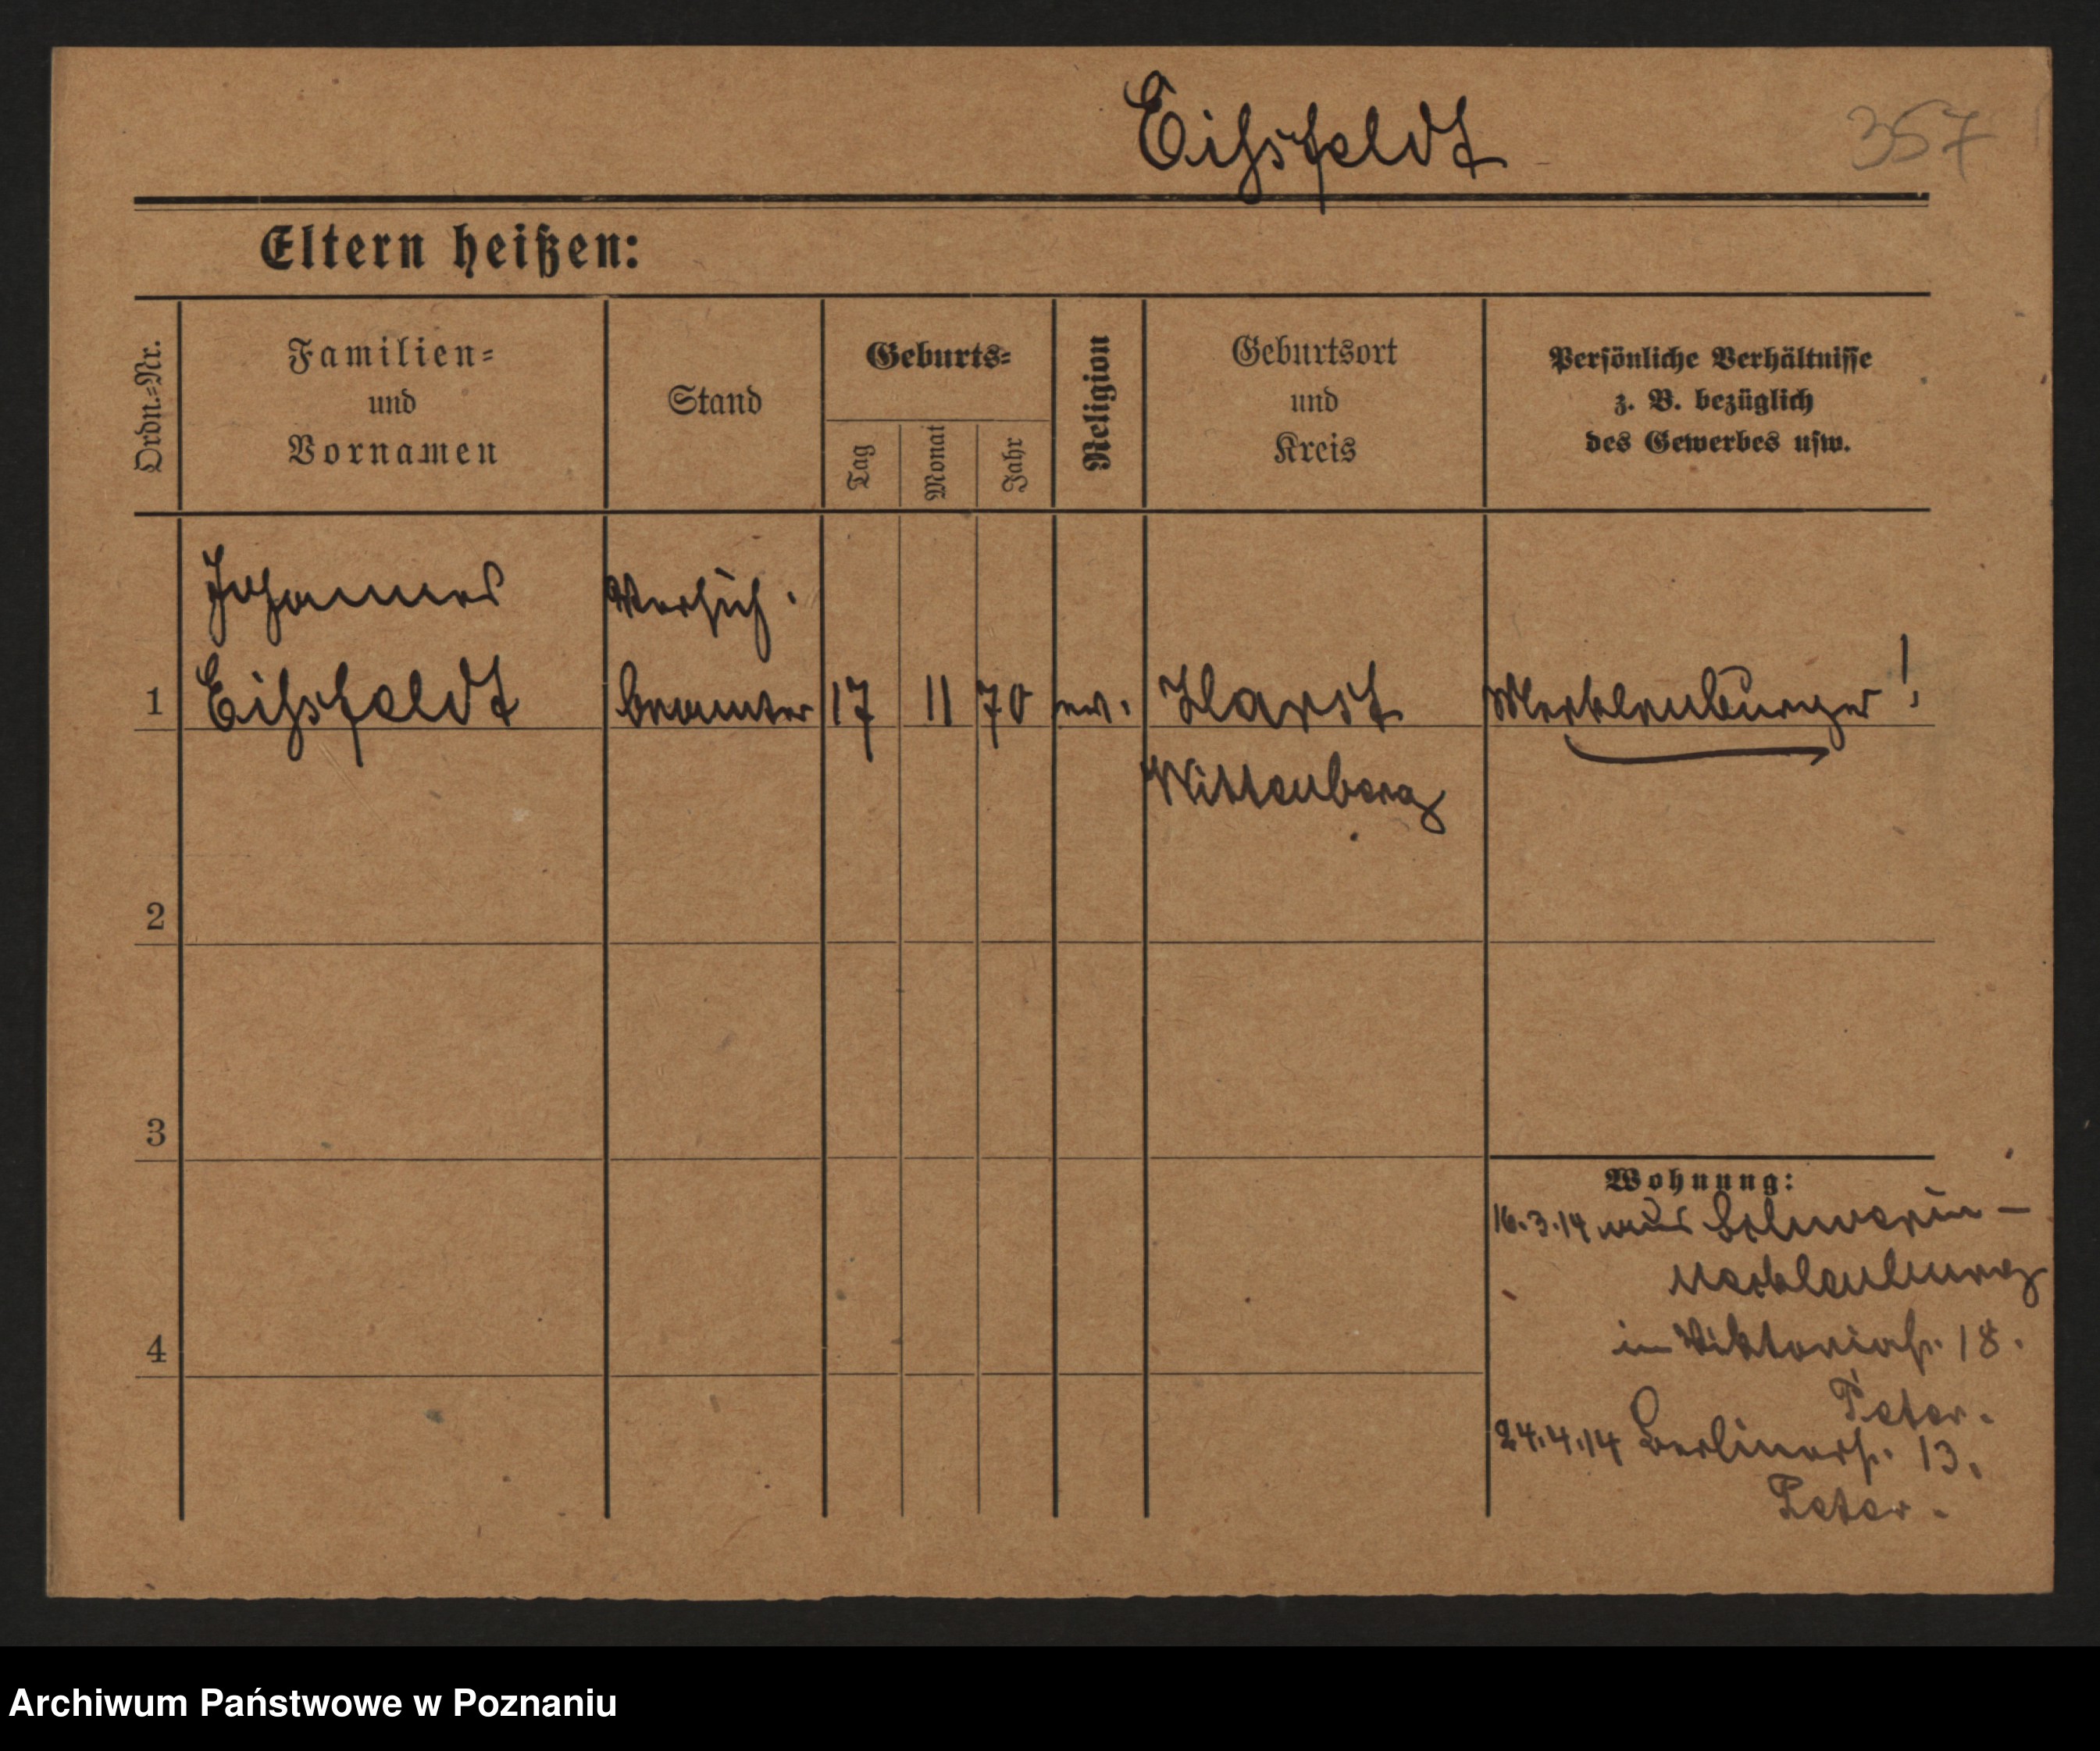 Eissfeldt
357
Eltern heißen:
Ordn.=Nr.
Familien=
und
Vornamen
Stand
Geburts=
Tag
Monat
Jahr
Religion
Geburtsort
und
Kreis
Persönliche Verhältnisse
z. B. bezüglich
des Gewerbes usw.
Johannes Versich.
1 Eissfeldt beamter 17 11 70 ev. Mecklenburger!
Wittenberg
2
3
4
Wohnung:
16.3.14 aus Schwerin-
Mecklenburg
in Viktoriastr. 18.
Peter.
24.4.14 Berlinerstr. 13.
Peter.
Archiwum Państwowe w Poznaniu